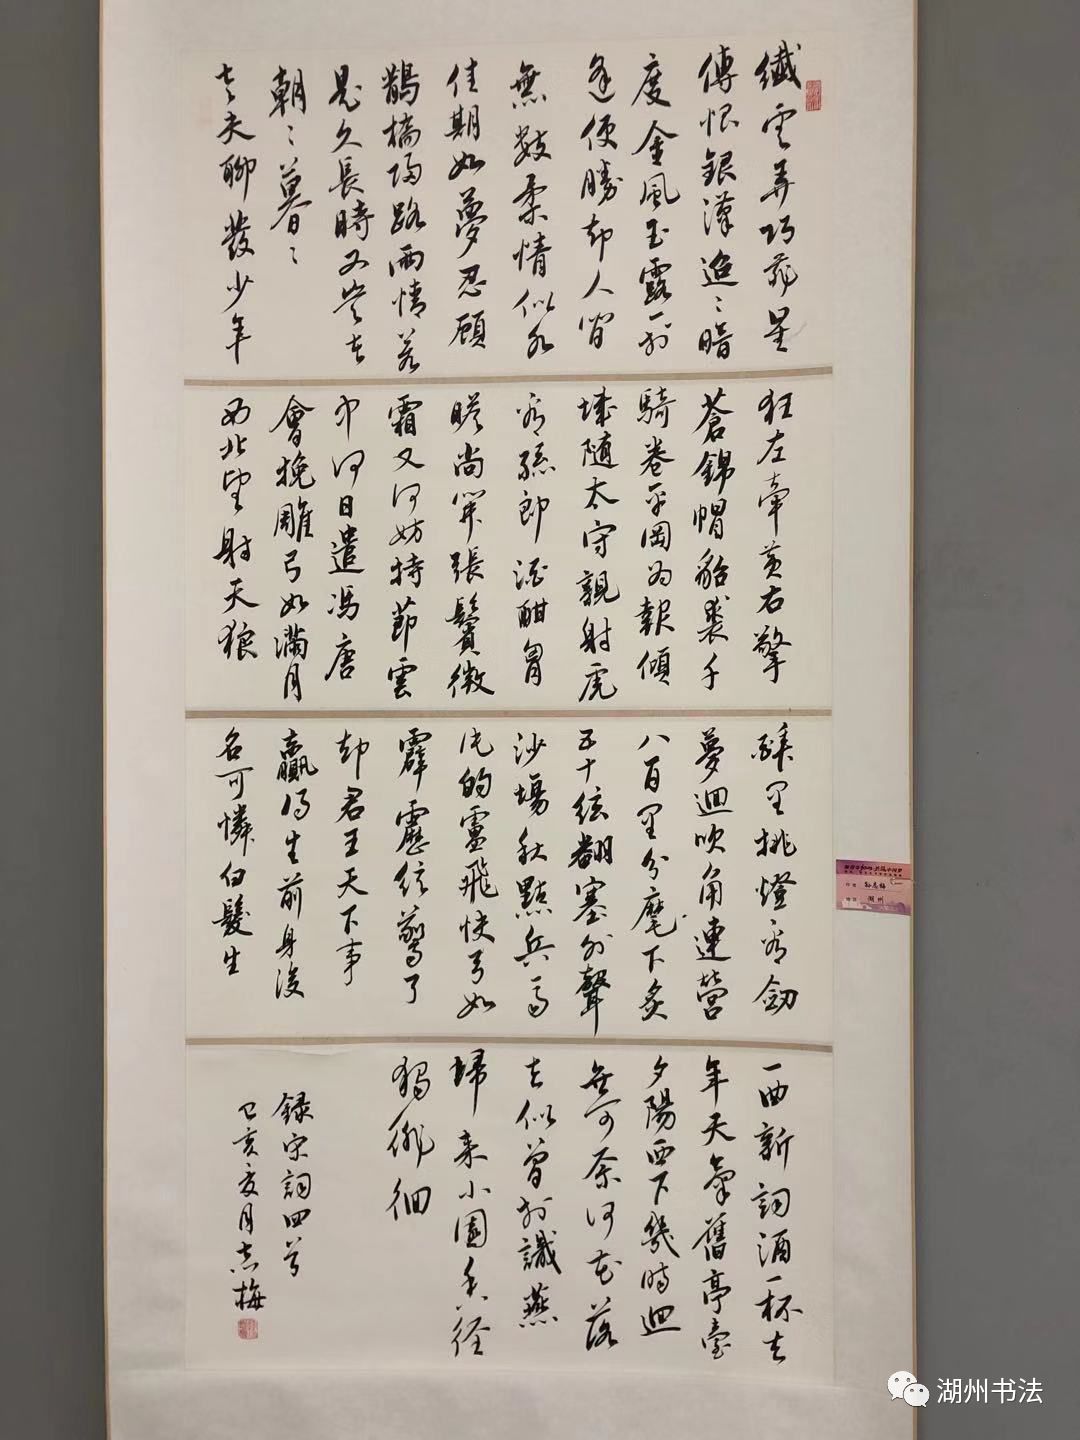 纖雲弄巧飛星
傳恨銀漢迢〻暗
度金風玉露一相
逢便勝却人間
無數柔情似水
佳期如夢忍顧
鵲橋歸路兩情若
是久長時又豈在
朝〻暮〻
老夫聊發少年
狂左牽黃右擎
蒼錦帽貂裘千
騎卷平岡為報傾
城随太守親射虎
看孫郎酒酣胷
膽尚開張鬢微
霜又何妨持節雲
中何日遣馮唐
會挽雕弓如滿月
西北望射天狼
醉里挑燈看劒
夢迴吹角連營
八百里分麾下炙
五十弦翻塞外聲
沙場秋點兵馬
作的盧飛快弓如
霹靂弦驚了
却君王天下事
贏得生前身後
名可憐白髮生
一曲新詞酒一杯去
年天氣舊亭臺
夕陽西下幾時迴
無可奈何花落
去似曾相識燕
歸来小園香徑
獨徘徊
録宋詞四首
己亥夏月志梅
孙志梅
湖州
湖州书法